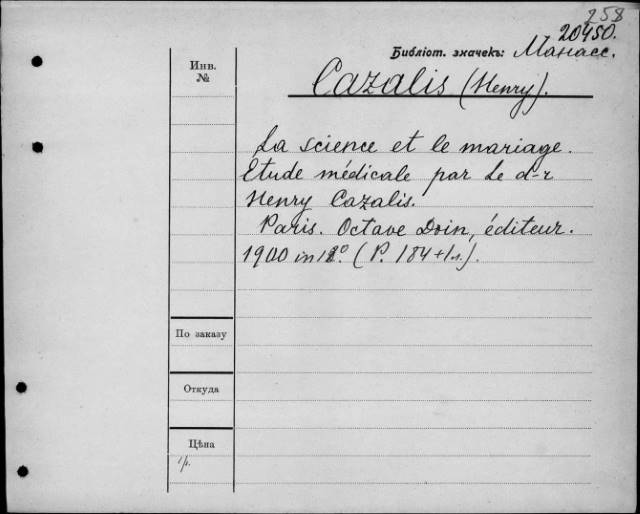 258
20450.
Библіот. значекъ: Манасс.
Инв.
№
Cazalis (Henry).
La science et le mariage.
Etude médicale par le d-r
Henry Cazalis.
Paris. Octave Doin, éditeur.
1900 in 12°. (P. 184+1л.).
По заказу
Откуда
Цѣна
1р.